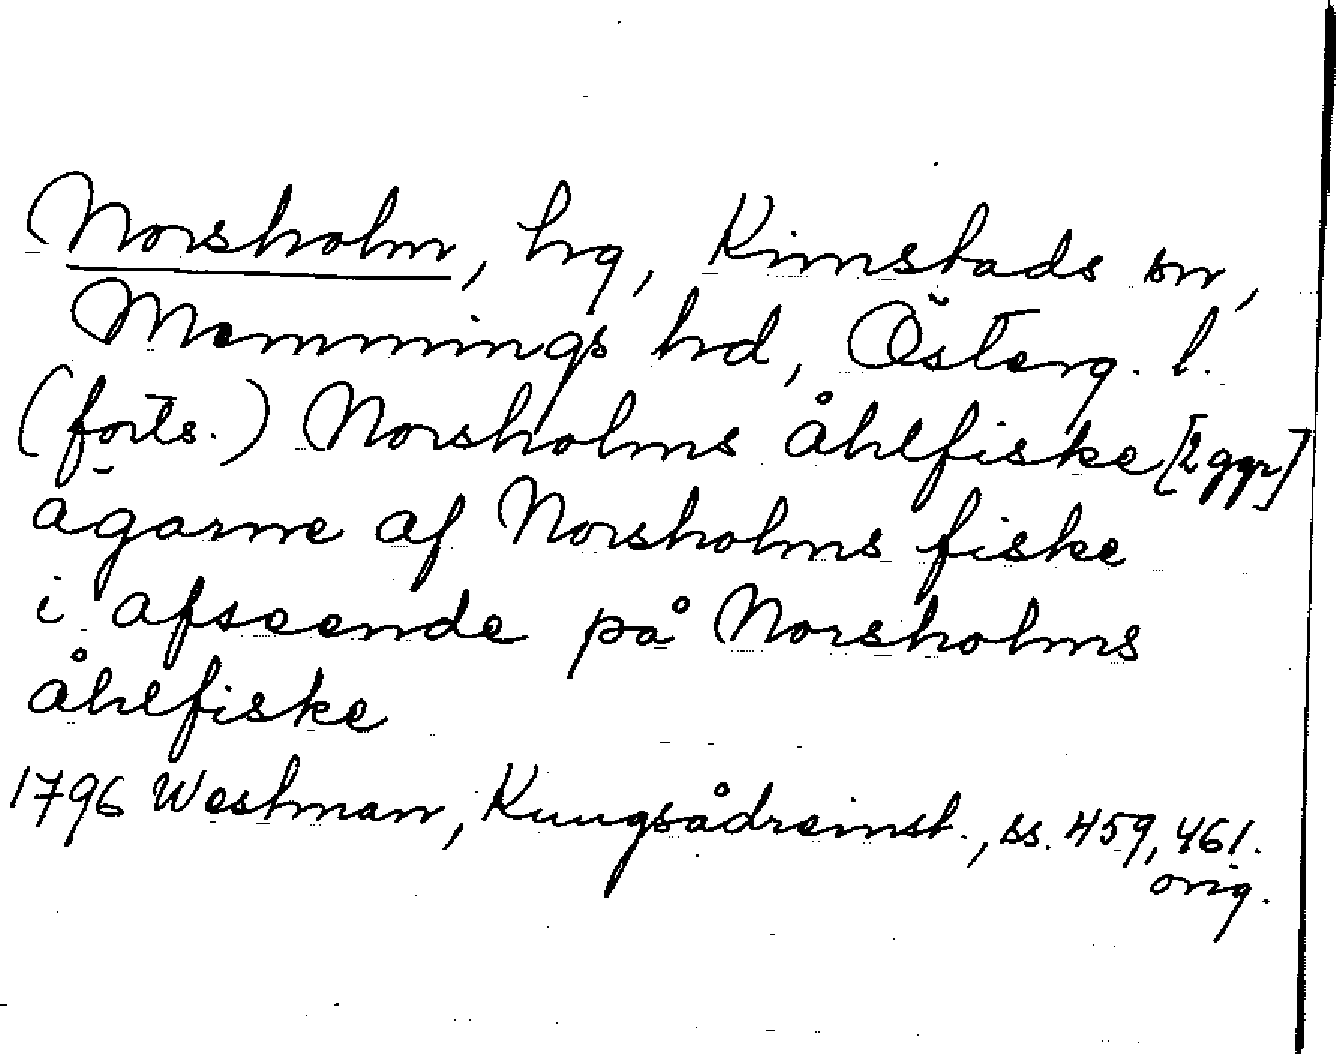 Norsholm, hg, Kimstads sn,
Memmings hd, Österg. l.
(forts.) Norsholms åhlfiske [2 ggr]
ägarne af Norsholms fiske
i afseende på Norsholms
åhlfiske
1796 Westman, Kungsådreinst., ss. 459, 461.
orig.